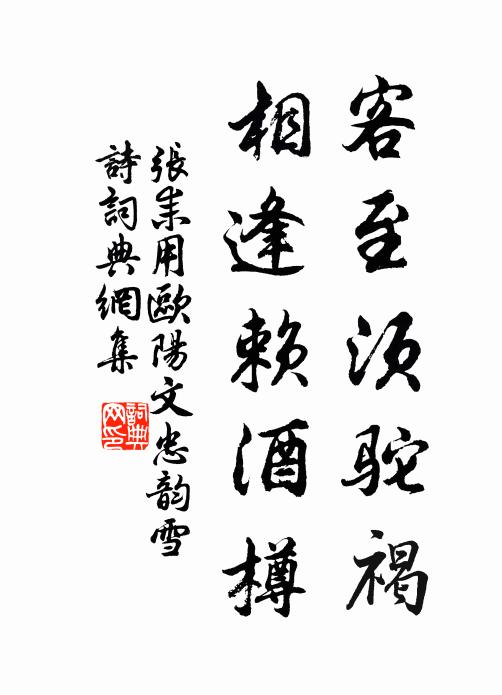 客至须駝褐
相逢赖酒樽
張耒用歐陽文忠韵雪
詩詞典網集
詞典网印